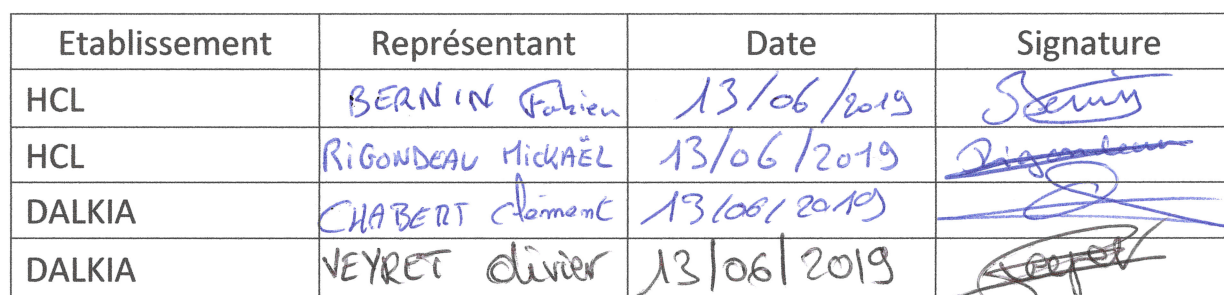 Etablissement Représentant Date Signature
HCL BERNIN Fabien 13/06/2019 Bernin
HCL RIGONDEAU MICKAËL 13/06/2019 Rigondeau
DALKIA CHABERT Clément 13/06/2019
DALKIA VEYRET Olivier 13/06/2019